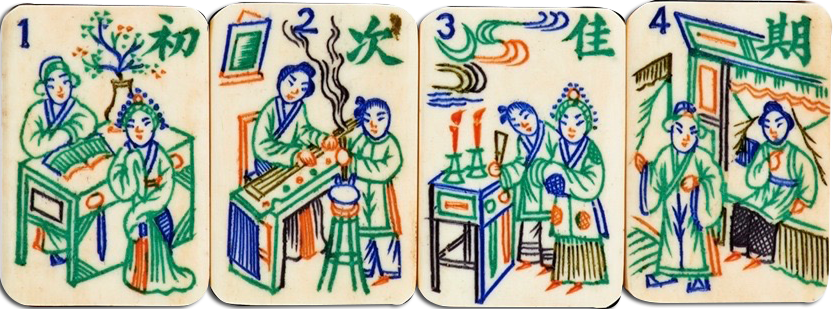 1 初
2 次
3 佳
4 期